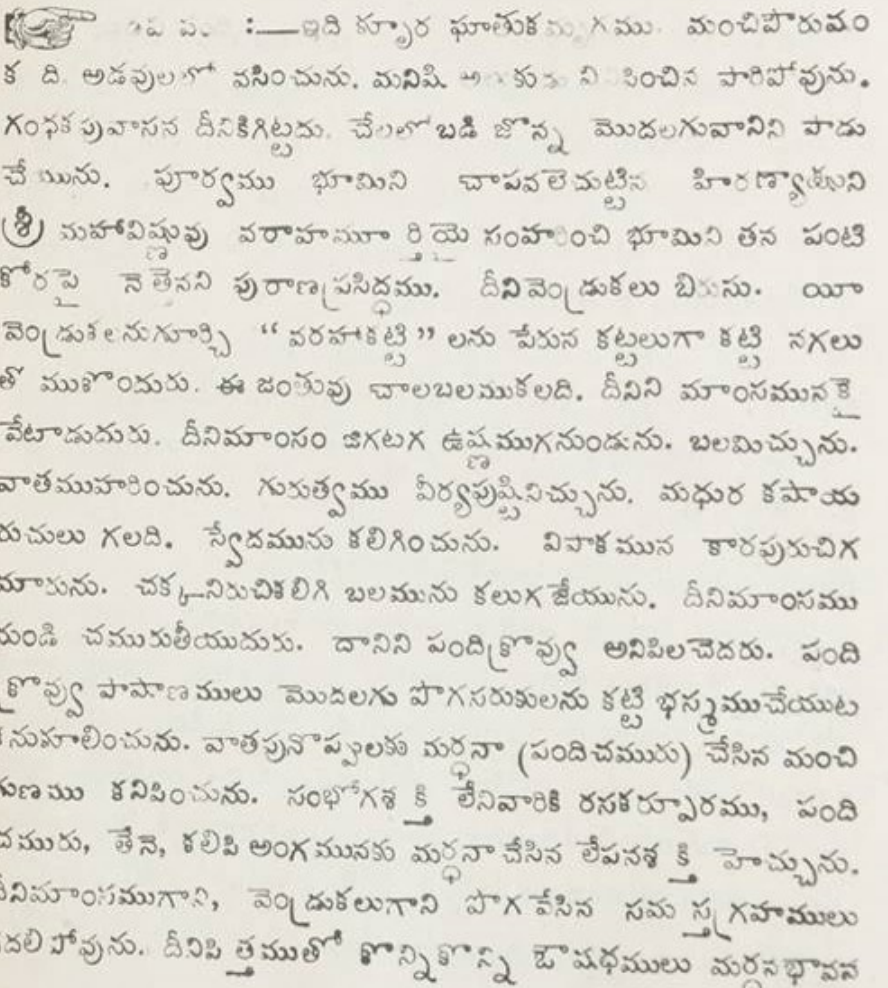 పంది :—ఇది క్రూర ఘాతుక మృగము. మంచిపౌరుషం
క ది. అడవులలో వసించును. మనిషి పారిపోవును.
గంధకపువాసన దీనికిగిట్టదు. చేలలోబడి జొన్న మొదలగువానిని పాడు
చేయును. పూర్వము భూమిని చాపవలెచుట్టిన హిరణ్యాక్షుని
శ్రీ మహావిష్ణువు వరాహమూర్తియై సంహరించి భూమిని తన పంటి
కోరపై నెత్తెనని పురాణప్రసిద్ధము. దీనివెండ్రుకలు బిరుసు. యీ
వెండ్రుకలనుగూర్చి “వరహాకట్టి” లను పేరున కట్టలుగా కట్టి నగలు
తోముకొందురు. ఈ జంతువు చాలబలముకలది. దీనిని మాంసమునకై
వేటాడుదురు. దీనిమాంసం జిగటగ ఉష్ణముగనుండును. బలమిచ్చును.
వాతముహరించును. గురుత్వము వీర్యపుష్టినిచ్చును. మధుర కషాయ
రుచులు గలది. స్వేదమును కలిగించును. విపాకమున కారపురుచిగ
మారును. చక్కనిరుచికలిగి బలమును కలుగజేయును. దీనిమాంసము
నుండి చమురుతీయుదురు. దానిని పందిక్రొవ్వు అనిపిలచెదరు. పంది
క్రొవ్వు పాషాణములు మొదలగు పొగసరుకులను కట్టి భస్మముచేయుట
కనుపాలించును. వాతపునొప్పులకు మర్ధనా (పందిచమురు) చేసిన మంచి
గుణము కనిపించును. సంభోగశక్తి లేనివారికి రసకర్పూరము, పంది
చమురు, తేనె, కలిపి అంగమునకు మర్ధనాచేసిన లేపనశక్తి హెచ్చును.
దీనిమాంసముగాని, వెండ్రుకలుగాని పొగవేసిన సమస్తగ్రహములు
వదలిపోవును. దీనిపిత్తముతో కొన్నికొన్ని ఔషధములు మర్ధనభావన